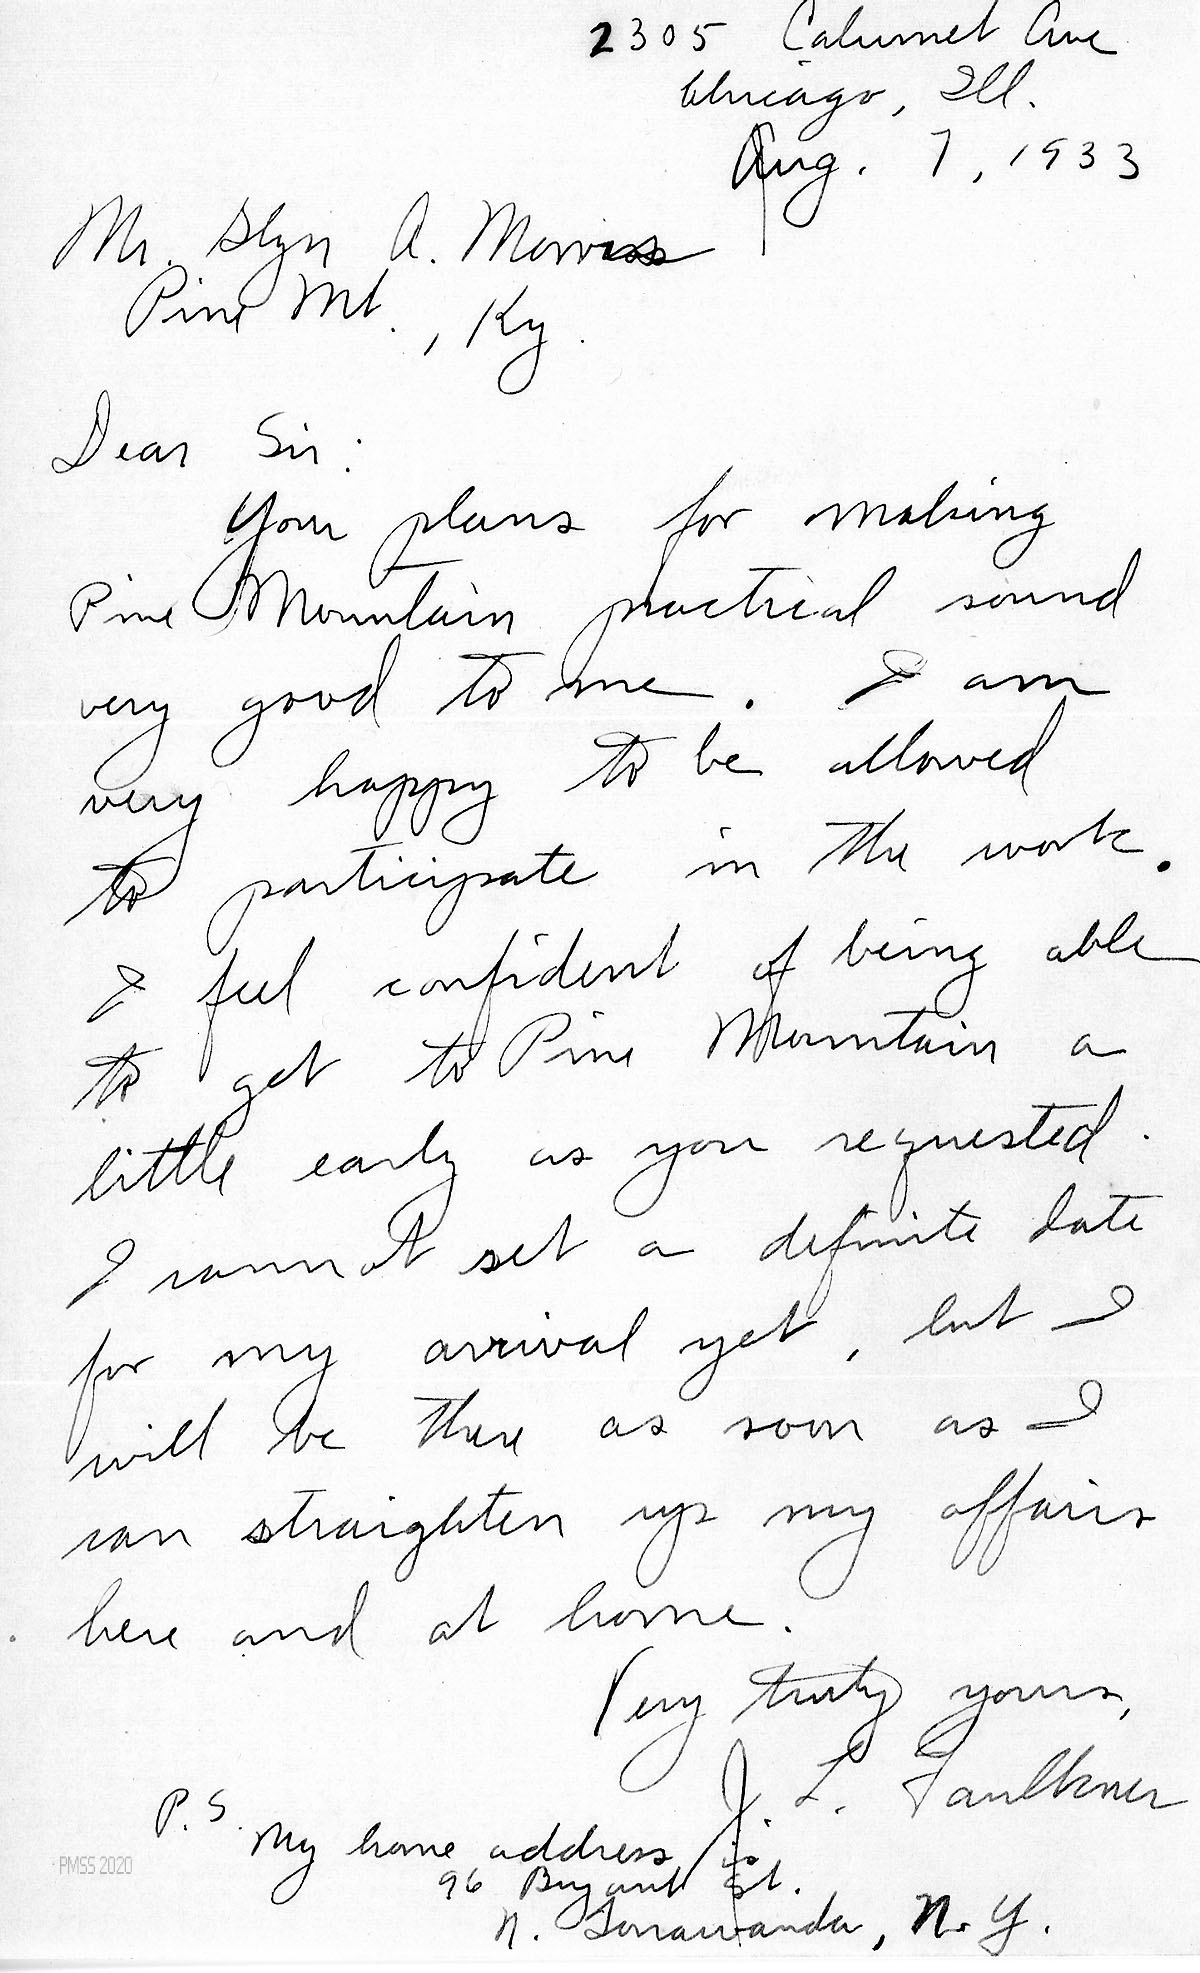 2305 Calumet Ave
Chicago, Ill.
Aug. 7, 1933
Mr. Glyn A. Morris
Pine Mt., Ky.
Dear Sir:
Your plans for making
Pine Mountain practical sound
very good to me. I am
very happy to be allowed
to participate in the work.
I feel confident of being able
to get to Pine Mountain a
little early as you requested.
I cannot set a definite date
for my arrival yet, but I
will be there as soon as I
can straighten up my affairs
here and at home.
Very truly yours,
J. L. Faulkner
P.S.
My home address is
96 Bryant St.
N. Tonawanda, N.Y.
PMSS 2020